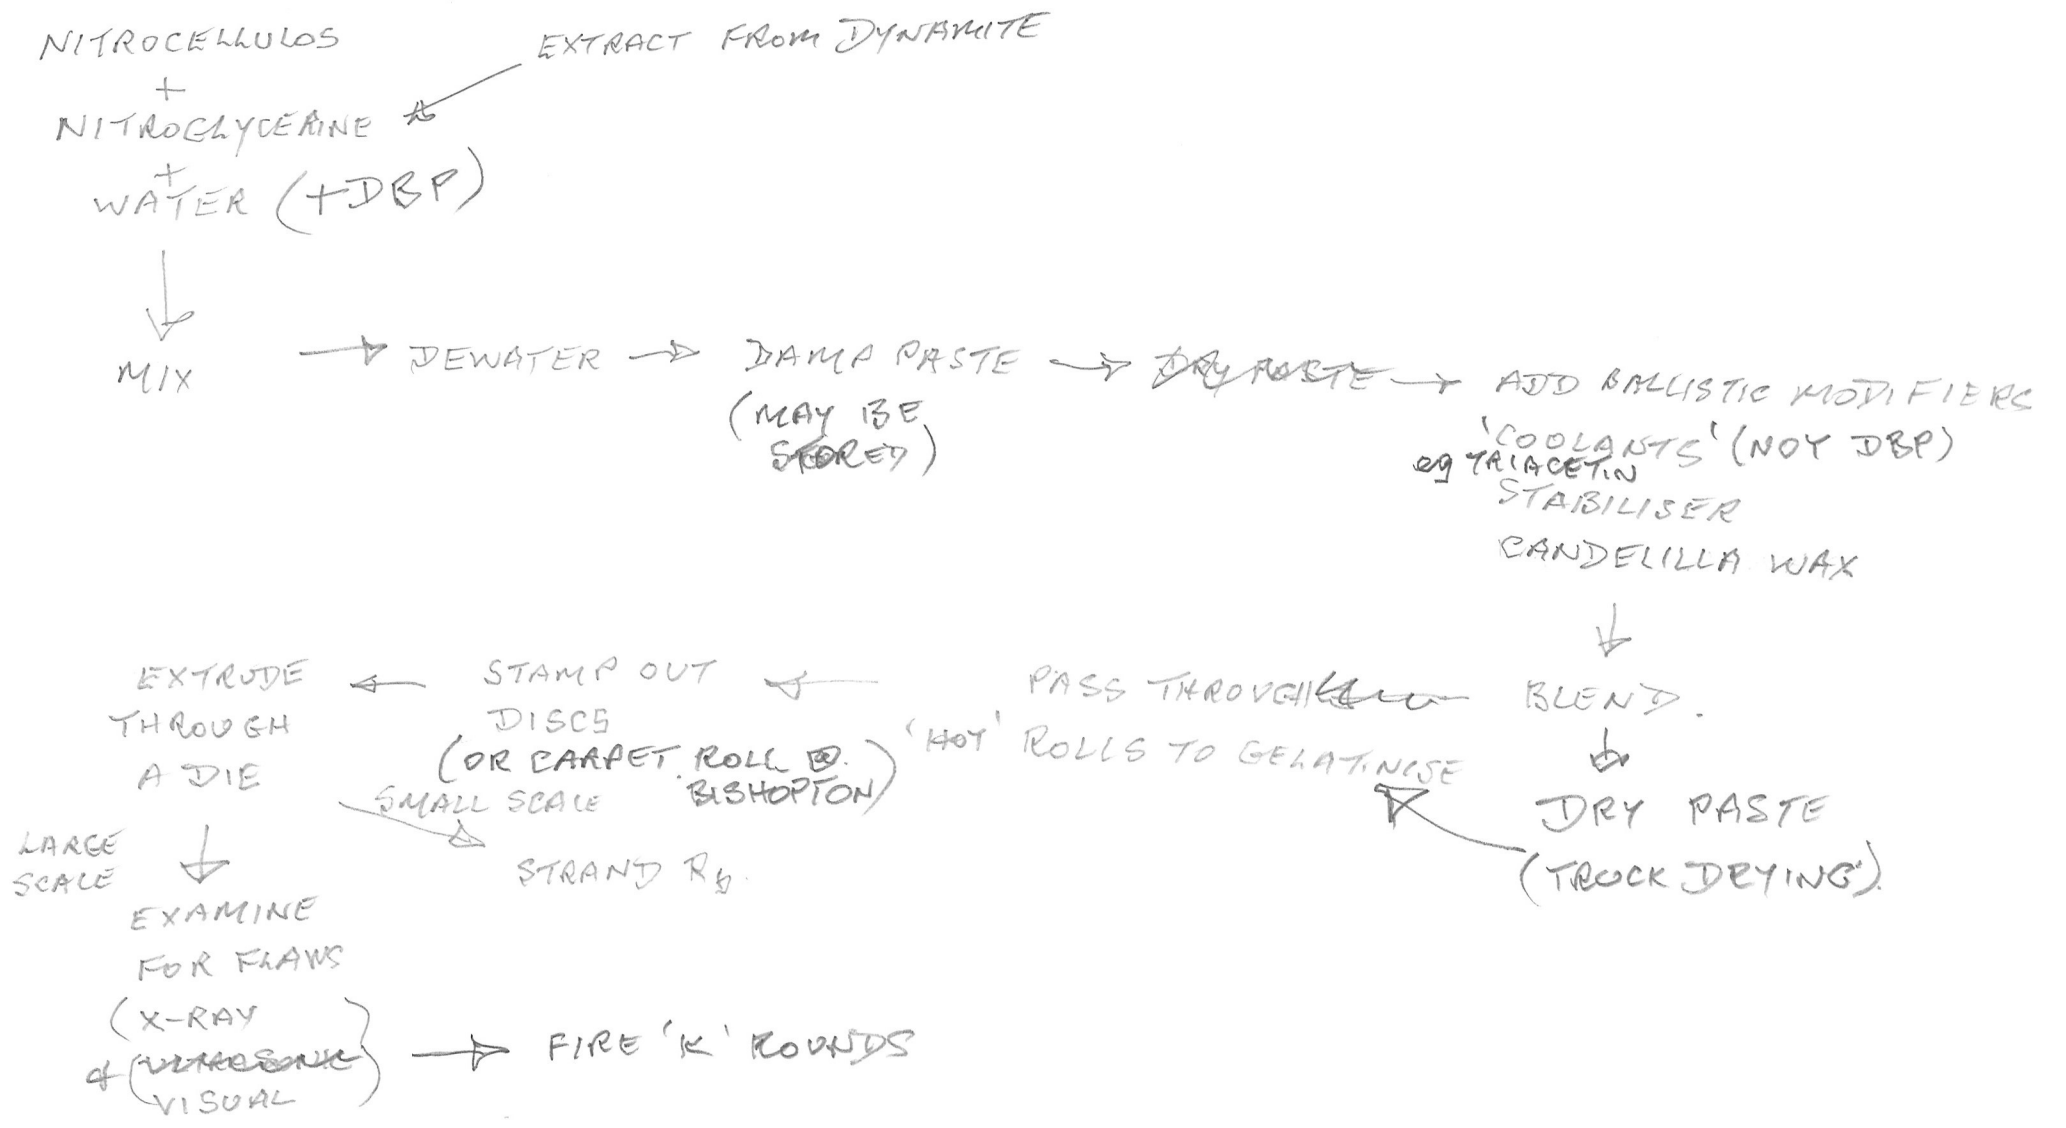 NITROCELLULOS
+
NITROGLYCERINE
EXTRACT FROM DYNAMITE
+
WATER (+DBP)
MIX
DEWATER
DAMP PASTE
(MAY BE
STORED)
DRY PASTE
ADD BALLISTIC MODIFIERS
'COOLANTS' (NOT DBP)
eg TRIACETIN
STABILISER
CANDELILLA WAX
BLEND.
DRY PASTE
(TRUCK DRYING)
PASS THROUGH
'HOT' ROLLS TO GELATINISE
STAMP OUT
DISCS
(OR CARPET ROLL @
BISHOPTON)
EXTRUDE
THROUGH
A DIE
SMALL SCALE
STRAND Rb.
LARGE
SCALE
EXAMINE
FOR FLAWS
(X-RAY
ULTRASONIC
VISUAL
FIRE 'K' ROUNDS